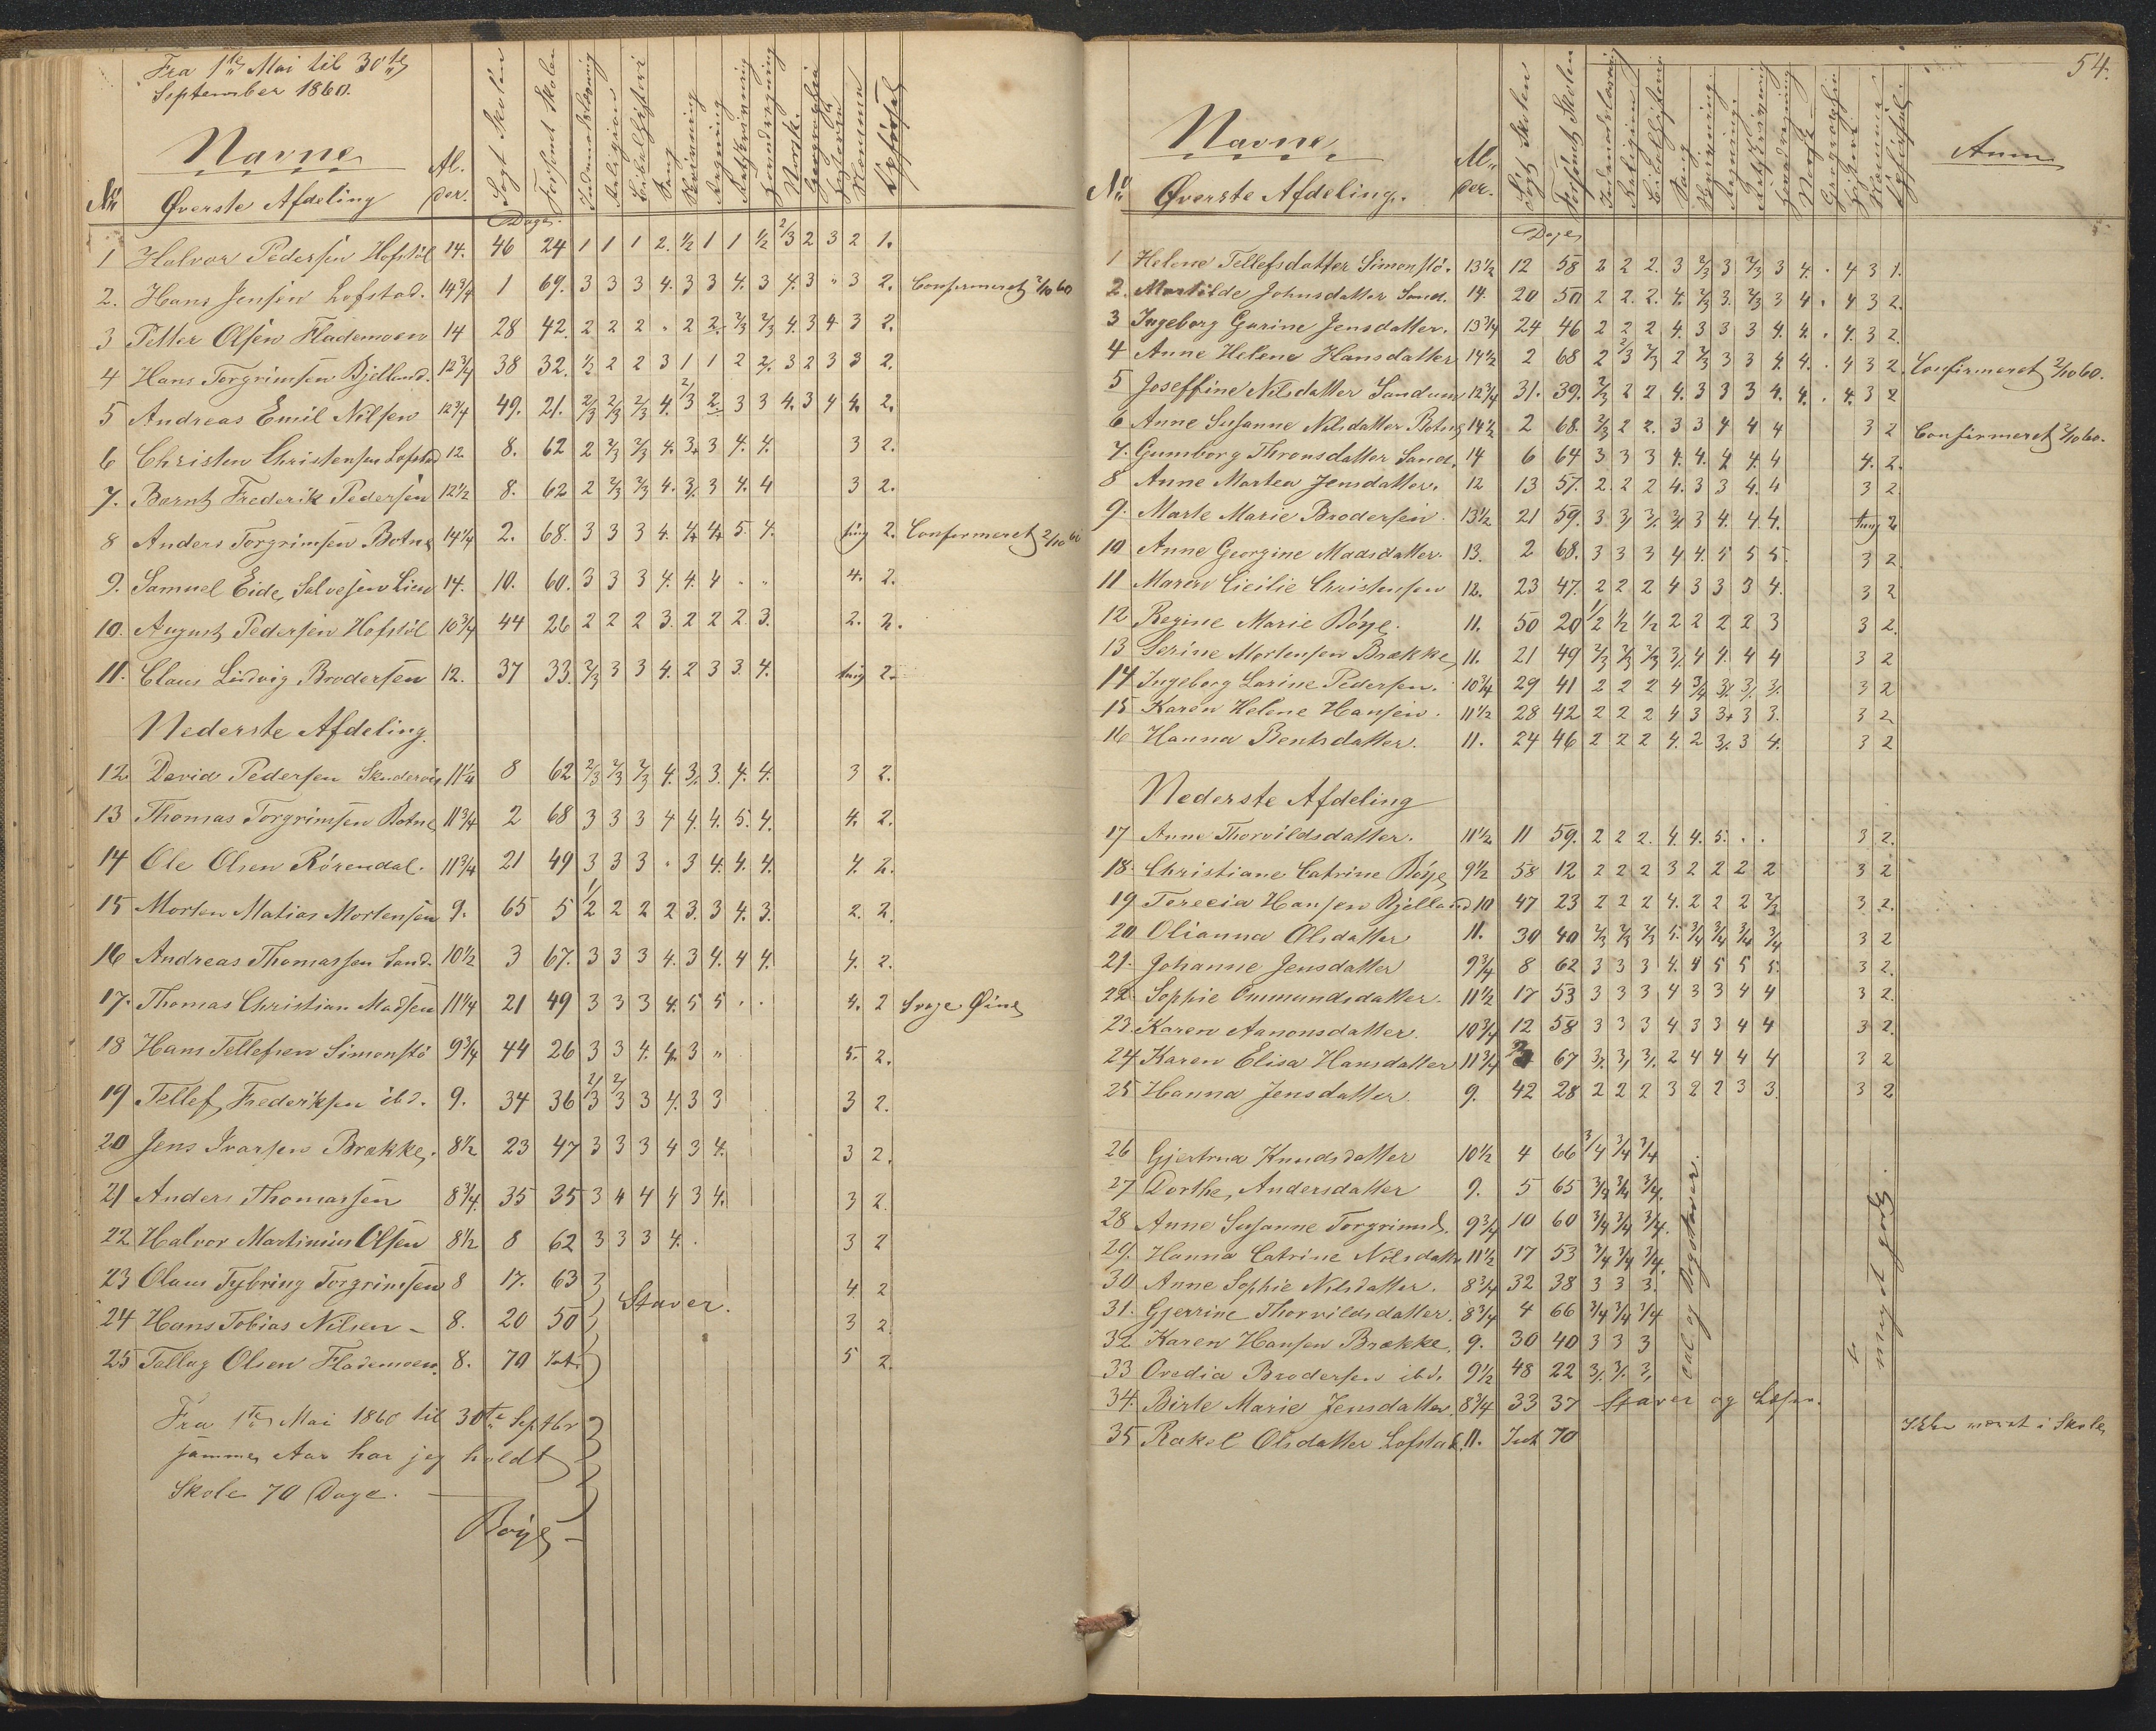 Fra 1te Mai til 30te
September 1860.
Navne
Al-
der.
Søgt Skolen
Forsømt Skolen
Indenadslæsning
Religion
Bibelhistorie
Sang
Skrivning
Regning
Retskrivning
Hovedregning
Norsk.
Geographie
Historie
Nemme
Opførsel
No
Øverste Afdeling
Dage.
1 Halvor Pedersen Hofstøl 14. 46 24 1 1 1 2. ½ 1 1 ½ 2/3 2 3 2 1.
2. Hans Jensen Lofstad. 14¾ 1 69. 3 3 3 4. 3 3 4. 3 4. 3 " 3 2. Confirmeret 2/10 60
3 Petter Olsen Flademoen 14 28 42. 2 2 2 " 2 2. 2/3 2/3 4. 3 4 3 2.
4 Hans Torgrimsen Bjelland. 12¾ 38 32. ½ 2 2 3 1 1 2 2/. 3 2 3 3 2.
5 Andreas Emil Nilsen 12¾ 49. 21. 2/3 2/3 2/3 4. 2/3 2 3 3 4. 3 4 4. 2.
6 Christen Christensen Lofstad 12 8. 62 2 2/3 2/3 4. 3. 3 4. 4. 3 2.
7. Bernt Frederik Pedersen 12½ 8. 62 2 2/3 2/3 4. 3/. 3 4. 4 3 2.
8 Anders Torgrimsen Botne 14¼ 2. 68. 3 3 3 4. 4 4 5. 4. 2. Confirmeret 2/10 60
9. Samuel Eide Salvesen Lien 14. 10. 60. 3 3 3 4. 4. 4 . " 4. 2.
10. August Pedersen Hofstøl 10¾ 44 26 2 2 2 3. 2 2 2. 3. 2. 2.
11. Claus Ludvig Brodersen 12. 37 33. 2/3 3 3 4. 2 3 3. 4. 2.
Nederste Afdeling.
12 David Pedersen 11¼ 8 62 2/3 2/3 2/3 4. 3/. 3. 4. 4. 3 2.
13 Thomas Torgrimsen Botne 11¾ 2 68 3 3 3 4 4. 4. 5. 4. 4. 2.
14 Ole Olsen Rørendal. 11¾ 21 49 3 3 3 " 3 4. 4. 4. 4. 2.
15 Morten Matias Mortensen 9. 65 5 ½ 2 2 2 3. 3 4. 3. 2. 2.
16 Andreas Thomassen Sand. 10½ 3 67. 3 3 3 4. 3 4. 4 4. 4. 2.
17. Thomas Christian Madsen 11¼ 21 49 3 3 3 4. 5 5 . . 4. 2 Svage Øine
18 Hans Tellefsen Simonstø 9¾ 44 26 3 3 4. 4. 3 " 5. 2.
19 Tellef Frederiksen ibd. 9. 34 36 2/3 2/3 3 4. 3 3 3 2.
20 Jens Ivarsen Brække. 8½ 23 47 3 3 3 4 3 4. 3 2.
21 Anders Thomassen 8¾. 35 35 3 4 4 4 3 4. 3 2.
22 Halvor Martinius Olsen 8½ 8 62 3 3 3 4. . 3 2
23 Olaus Tybring Torgrimsen 8 17. 63 4 2
Staver.
24 Hans Tobias Nilsen – 8. 20 50 3 2
25 Tallag Olsen Flademoen. 8. 70 Int. 5 2.
Fra 1te Mai 1860 til 30te Septbr
samme Aar har jeg holdt
Skole 70 Dage. —
Bøye –
54.
Navne
Al-
der.
Søgt Skolen
Forsømt Skolen
Indenadslæsning
Religion
Bibelhistorie
Sang
Skrivning.
Regning.
Retskrivning
Hovedregning
Norsk
Geographie
Historie
Nemme
Opførsel.
Anm.
No
Øverste Afdeling.
Dage
1 Helene Tellefsdatter Simonstø. 13½ 12 58 2 2 2. 3 2/3 3 2/3 3 4. . 4 3 1.
2. Martilde Johnsdatter Sand. 14. 20 50 2 2. 2. 4. 2/3 3. 2/3 3 4 . 4 3 2.
3 Ingeborg Gurine Jensdatter. 13¾ 24 46 2 2 2 4 3 3 3 4. 4. . 4. 3 2.
4 Anne Helene Hansdatter 14½ 2 68 2 2/3 2/3 2 2/3 3 3 4. 4. . 4 3 2. Confirmeret 2/10 60.
5 Joseffine Nilsdatter Sandum 12¾ 31. 39. 2/3 2 2 4. 3 3 3 4. 4. . 4. 3 2
6 Anne Susanne Nilsdatter Botne 14½ 2 68. 2/3 2 2. 3 3 4 4 4 3 2 Confirmeret 2/10 60.
7. Gumborg Thronsdatter Sand. 14 6 64 3 3 3 4. 4. 4 4. 4 4. 2.
8 Anne Martea Jensdatter. 12 13 57. 2. 2 2 4. 3 3 4. 4 3 2
9. Marte Marie Brodersen. 13½ 21 59. 3 3/. 3/. 3/. 3 4. 4. 4. 2
10 Anne Georgine Madsdatter. 13. 2 68. 3 3 3 4 4. 5 5 5. 3 2.
11 Maren Cicilie Christensen 12. 23 47. 2 2 2 4 3 3 3 4. 3 2
12 Regine Marie Bøye. 11. 50 20 ½ ½ ½ 2 2 2 2 3 3 2.
13 Serine Mortensen Brække 11. 21 49 2/3 2/3 2/3 3/. 4 4. 4 4 3 2
14 Ingeborg Larine Pedersen. 10¾ 29 41 2 2 2 4 ¾ 3/. 3/. 3/. 3 2
15 Karen Helene Hansen. 11½ 28 42 2 2 2 4 3 3+ 3 3. 3 2
16 Hanna Bentsdatter. 11. 24 46 2 2 2 4. 2 3/. 3 4. 3 2
Nederste Afdeling
17 Anne Thorvildsdatter. 11½ 11 59. 2 2 2. 4. 4. 5. . . 3 2.
18. Christiane Catrine Bøye 9½ 58 12 2 2 2 3 2 2 2 2 3 2
19 Terecia Hansen Bjelland 10 47 23 2 2 2 4. 2 2 2 2/3 3 2.
20 Olianna Olsdatter 11. 30 40 2/3 2/3 2/3 5. ¾ ¾ ¾ ¾ 3 2
21. Johanne Jensdatter 9¾ 8 62 3 3 3 4. 4 5 5 5. 3 2.
22. Sophie Ommundsdatter. 11½ 17 53 3 3 3 4 3 3 4 4 3 2.
23. Karen Aanonsdatter. 10¾ 12 58 3 3 3 4 3 3 4 4 3 2.
24 Karen Elisa Hansdatter 11¾ 3 67 3/. 3/. 3/. 2 4 4 4 4 3 2
25 Hanna Jensdatter. 9. 42 28 2 2 2 3 2 2 3 3. 3 2
26 Gjertrua Knudsdatter 10½ 4 66 ¾ ¾ ¾
27 Dorthe Andersdatter 9. 5 65 ¾ ¾ ¾.
28 Anne Susanne Torgrimsd. 9¾ 10 60 ¾ ¾ ¾.
29. Hanna Catrine Nilsdatter 11½ 17 53 ¾ ¾ ¾.
30 Anne Sophie Nilsdatter. 8¾ 32 38 3 3 3.
31. Gjerrine Thorvildsdatter. 8¾ 4 66 ¾ ¾ ¾
32. Karen Hansen Brække. 9. 30 40 3 3 3
33 Ovedia Brodersen ibd. 9½ 48 22 3/. 3/. 3/.
Tal og Bogstaver.
meget godt.
34. Birte Marie Jensdatter. 8¾ 33 37 Staver og Læser.
35 Rakel Olsdatter Lofstad. 11. Int 70 Ikke været i Skole